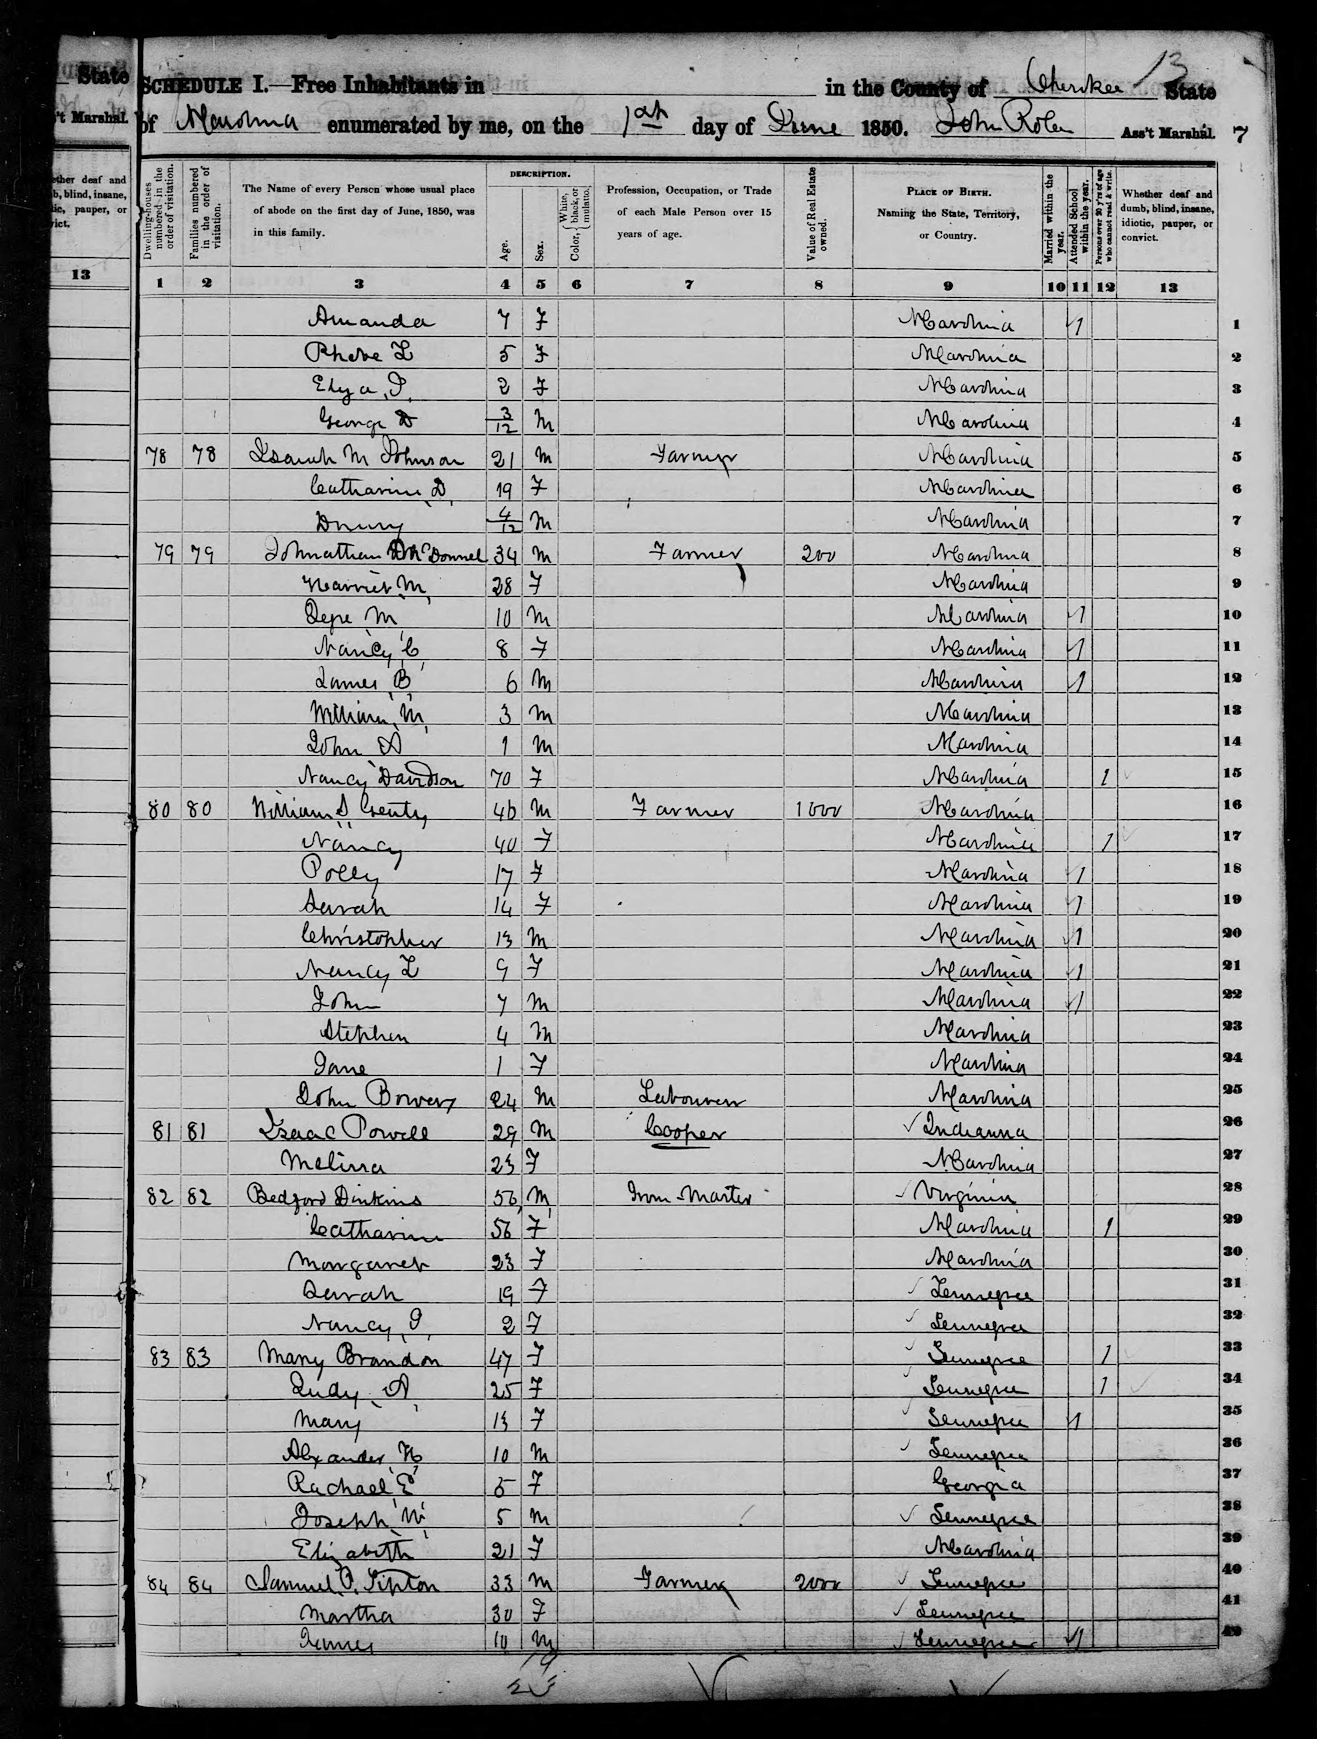 State
't Marshal.
ether deaf and
b, blind, insane,
ic, pauper, or
vict.
13
13
SCHEDULE I.—Free Inhabitants in in the County of Cherokee State
of NCarolina enumerated by me, on the 1st day of June 1850. John Rolen Ass't Marshal. 7
Dwelling-houses numbered in the order of visitation.
Families numbered in the order of visitation.
The Name of every Person whose usual place of abode on the first day of June, 1850, was in this family.
DESCRIPTION.
Age.
Sex.
Color, { White, black, or mulatto.
Profession, Occupation, or Trade of each Male Person over 15 years of age.
Value of Real Estate owned.
PLACE OF BIRTH. Naming the State, Territory, or Country.
Married within the year.
Attended School within the year.
Persons over 20 y'rs of age who cannot read & write.
Whether deaf and dumb, blind, insane, idiotic, pauper, or convict.
1 2 3 4 5 6 7 8 9 10 11 12 13
Amanda 7 F NCarolina 1 1
Phebe L 5 F NCarolina 2
2 F NCarolina 3
George D 3/12 M NCarolina 4
78 78 Isaiah M Johnson 21 M Farmer NCarolina 5
Catharine D 19 F NCarolina 6
Drury 4/12 M NCarolina 7
79 79 Johnathan McDonnel 34 M Farmer 200 NCarolina 8
Harriet M 28 F NCarolina 9
M 10 M NCarolina 1 10
Nancy C 8 F NCarolina 1 11
James B 6 M NCarolina 1 12
William M 3 M NCarolina 13
John A 1 M NCarolina 14
Nancy Davidson 70 F NCarolina 1 15
80 80 William S Genty 46 M Farmer 1000 NCarolina 16
Nancy 40 F NCarolina 1 17
Polly 17 F NCarolina 1 18
Sarah 14 F NCarolina 1 19
Christopher 13 M NCarolina 1 20
Nancy L 9 F NCarolina 1 21
John 7 M NCarolina 1 22
Stephen 4 M NCarolina 23
Jane 1 F NCarolina 24
John Bowers 24 M Labourer NCarolina 25
81 81 Isaac Powell 29 M Cooper Indianna 26
Melissa 23 F NCarolina 27
82 82 Bedford Dinkins 56 M Iron Master Virginia 28
Catharine 56 F NCarolina 1 29
Margaret 23 F NCarolina 30
Sarah 19 F Tennessee 31
Nancy J 2 F Tennessee 32
83 83 Mary Brandon 47 F Tennessee 1 33
Judy A 25 F Tennessee 1 34
Mary 13 F Tennessee 1 35
Alexander H 10 M Tennessee 36
Rachael E 5 F Georgia 37
Joseph W 5 M Tennessee 38
Elizabeth 21 F NCarolina 39
84 84 Samuel P. Tipton 33 M Farmer 2000 Tennessee 40
Martha 30 F Tennessee 41
James 10 M Tennessee 1 42
19
23